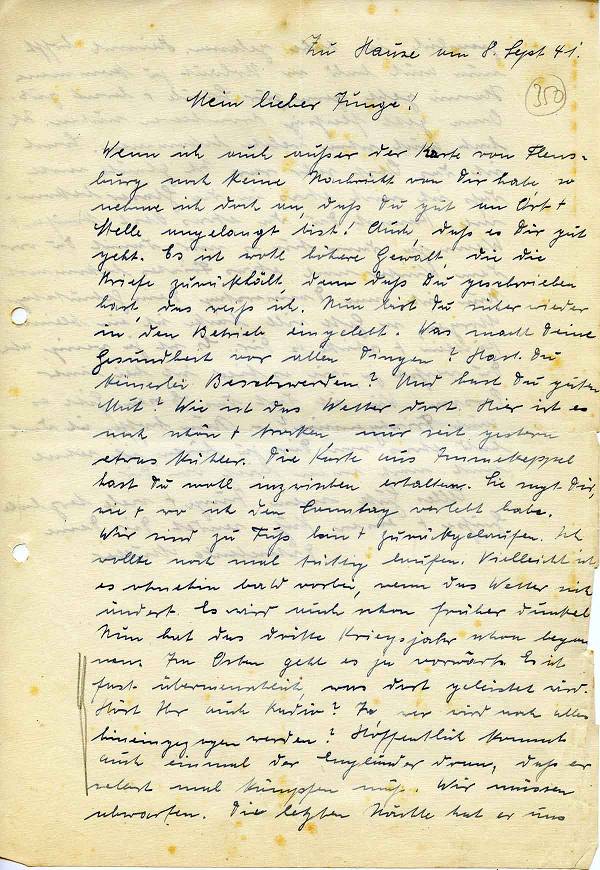 Zu Hause am 8. Sept 41.
350
Mein lieber Junge!
Wenn ich auch außer der Karte von Flens-
burg noch keine Nachricht von Dir habe, so
nehme ich doch an, daß Du gut an Ort +
Stelle angelangt bist! Auch, daß es Dir gut
geht. Es ist wohl höhere Gewalt, die die
Briefe zurückhält, denn daß Du geschrieben
hast, das weiß ich. Nun bist Du sicher wieder
in den Betrieb eingelebt. Was macht Deine
Gesundheit vor allen Dingen? Hast Du
keinerlei Beschwerden? Und hast Du guten
Mut? Wie ist das Wetter dort. Hier ist es
noch schön + trocken, nur seit gestern
etwas kühler. Die Karte aus Immekeppel
hast Du wohl inzwischen erhalten. Sie sagt Dir,
wie + wo ich den Sonntag verlebt habe.
Wir sind zu Fuß hin + zurückgelaufen. Ich
wollte noch mal tüchtig laufen. Vielleicht ist
es ohnehin bald vorbei, wenn das Wetter sich
ändert. Es wird auch schon früher dunkel
Nun hat das dritte Kriegsjahr schon begon
nen. Im Osten geht es ja vorwärts. Es ist
fast übermenschlich, was dort geleistet wird.
Hört Ihr auch Radio? Ja, wer wird noch alles
hineingezogen werden? Hoffentlich kommt
auch einmal der Engländer dran, daß er
selbst mal kämpfen muß. Wir müssen
abwarten. Die letzten Nächte hat er uns